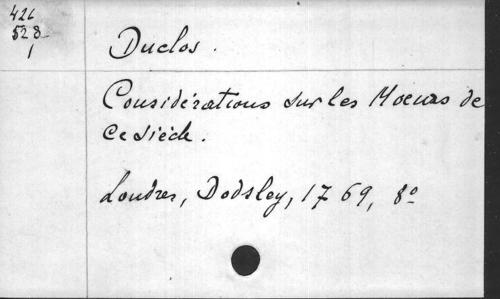 426
528
1
Duclos.
Considérations sur les Moeurs de
ce siècle.
Londres, Dodsley, 1769, 8°